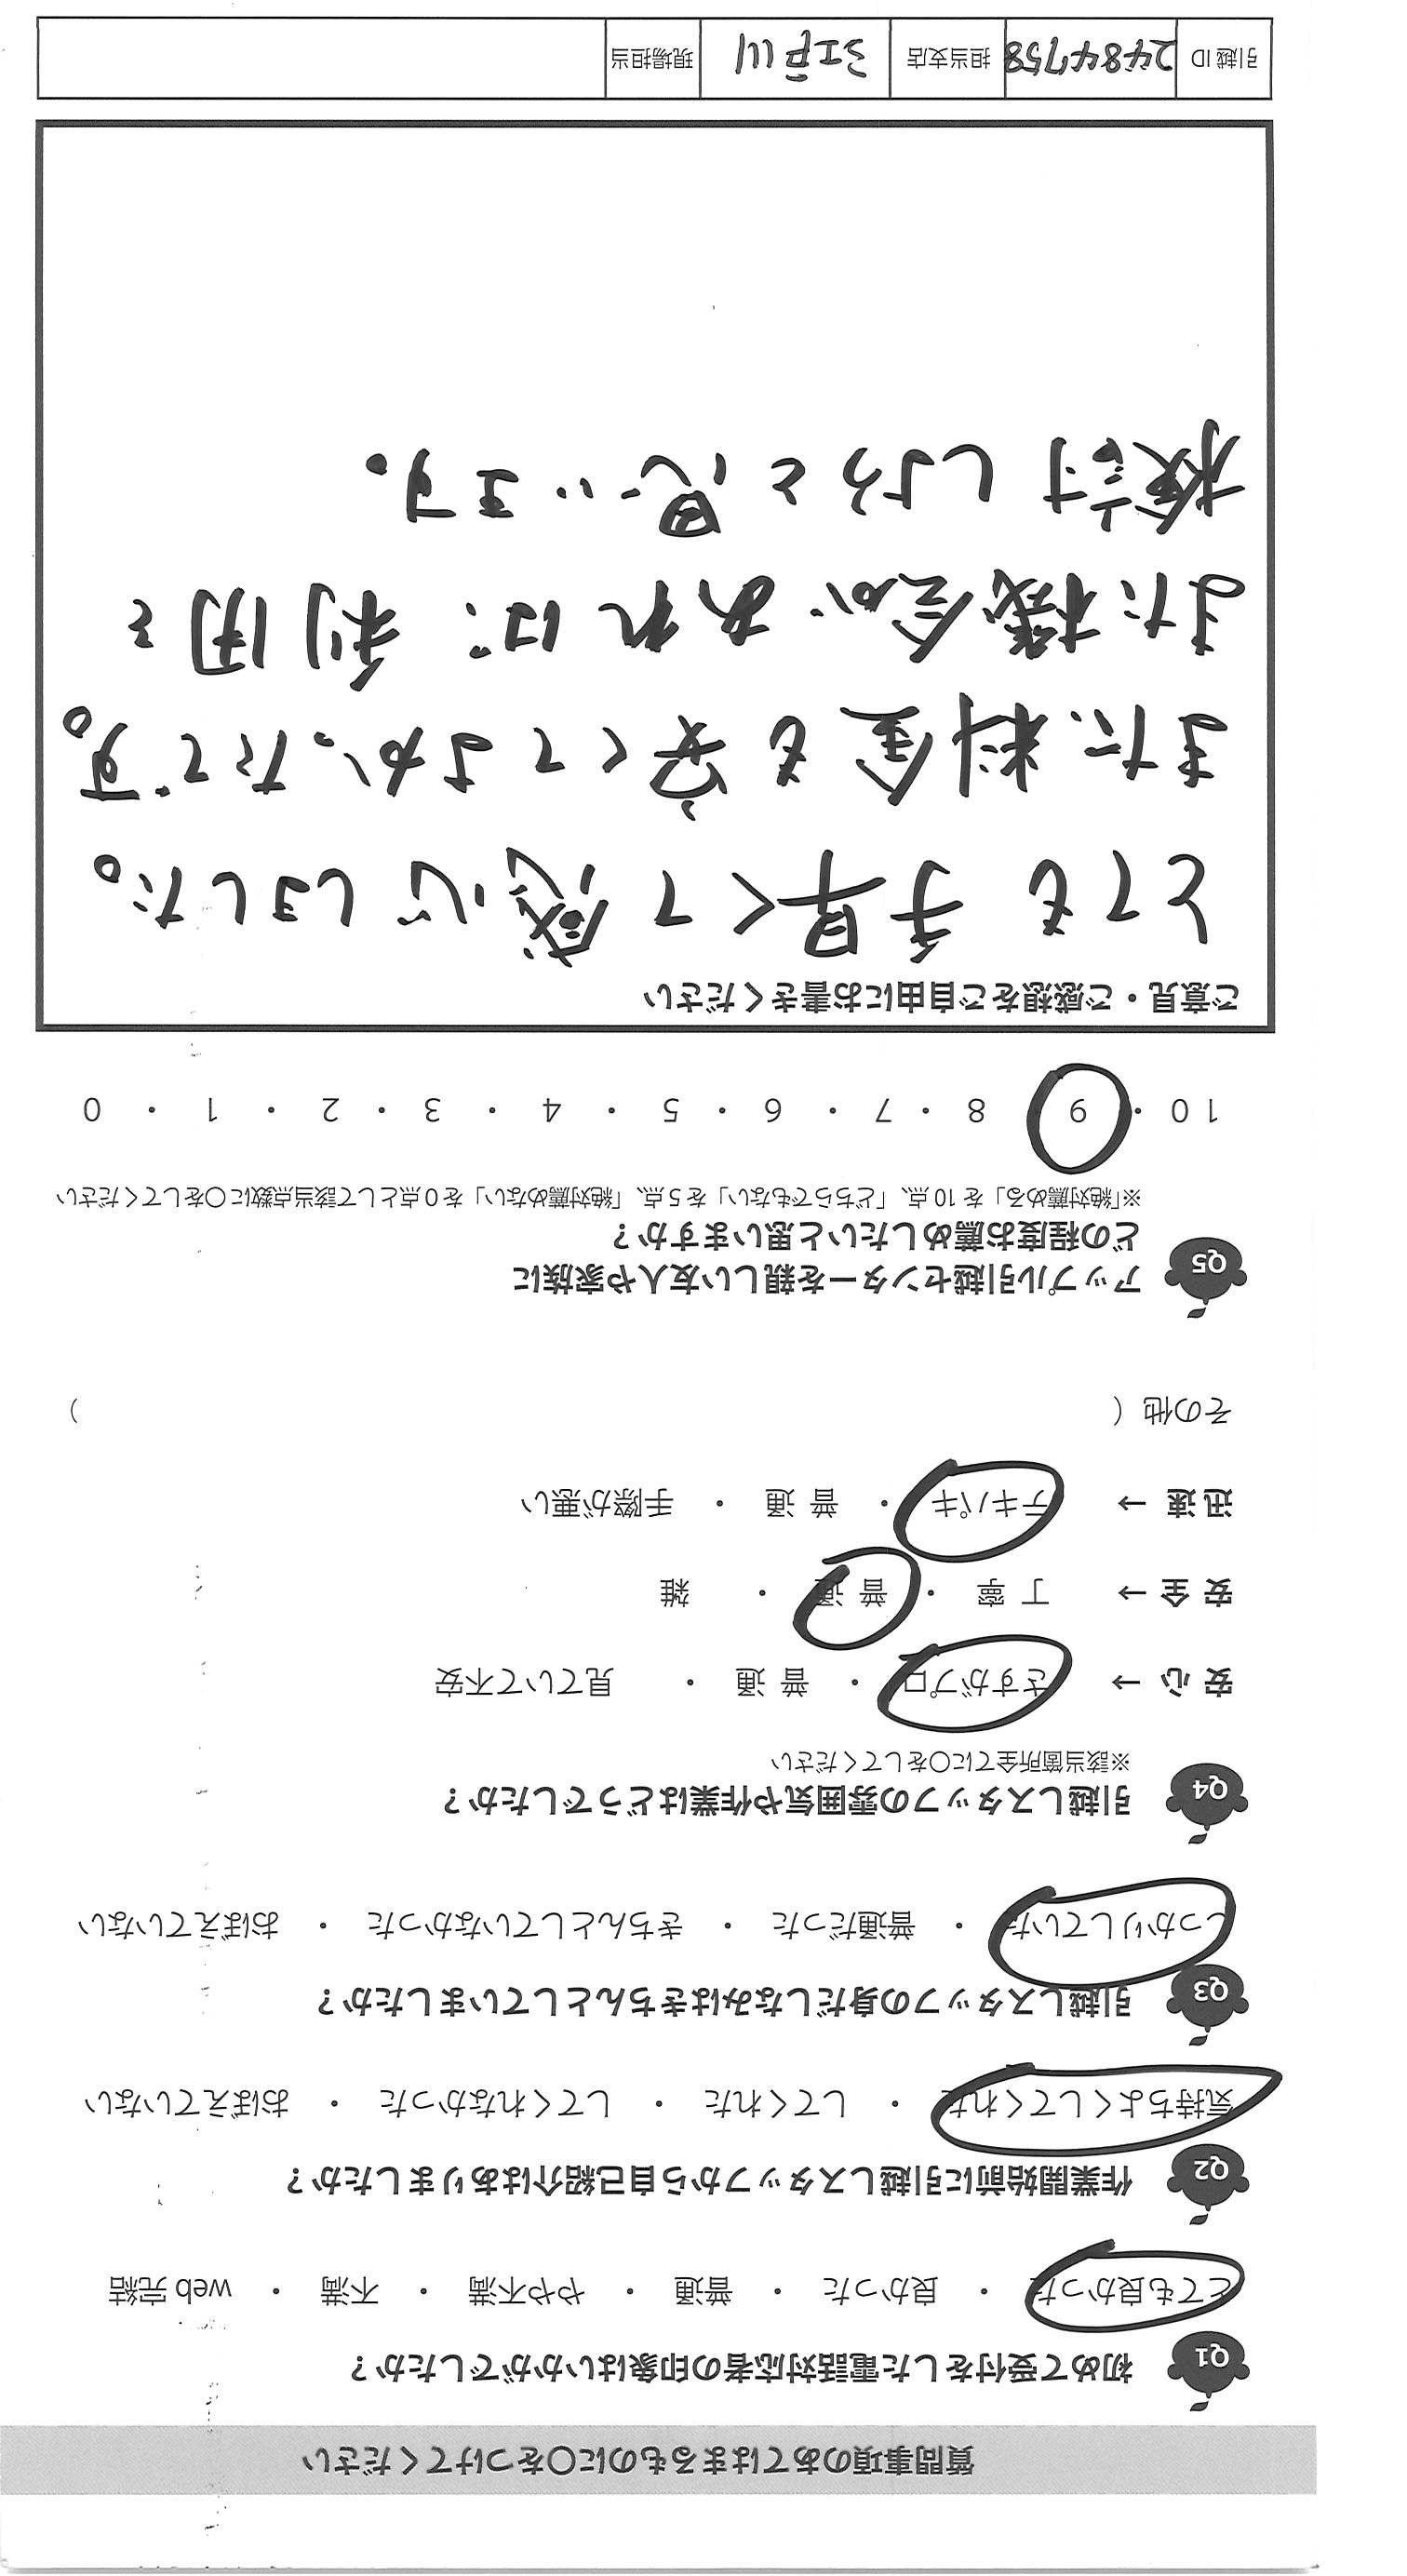 質問事項のあてはまるものに○をつけてください
Q1 初めて受付をした電話対応者の印象はいかがでしたか？
とても良かった ・ 良かった ・ 普通 ・ やや不満 ・ 不満 ・ web 完結
Q2 作業開始前に引越しスタッフから自己紹介はありましたか？
気持ちよくしてくれた ・ してくれた ・ してくれなかった ・ おぼえていない
Q3 引越しスタッフの身だしなみはきちんとしていましたか？
しっかりしていた ・ 普通だった ・ きちんとしていなかった ・ おぼえていない
Q4 引越しスタッフの雰囲気や作業はどうでしたか？
※該当箇所全てに○をしてください
安 心 → さすがプロ ・ 普 通 ・ 見ていて不安
安 全 → 丁 寧 ・ 普 通 ・ 雑
迅 速 → テキパキ ・ 普 通 ・ 手際が悪い
その他（ ）
Q5 アップル引越センターを親しい友人や家族に
どの程度お薦めしたいと思いますか？
※「絶対薦める」を 10 点、「どちらでもない」を 5 点、「絶対薦めない」を 0 点として該当点数に○をしてください
10 ・ 9 ・ 8 ・ 7 ・ 6 ・ 5 ・ 4 ・ 3 ・ 2 ・ 1 ・ 0
ご意見・ご感想をご自由にお書きください
とても手早くて感心しました。
また、料金も安くてよかったです。
また機会があれば、利用を
検討しようと思います。
引越 ID 2484758 担当支店 江戸川 現場担当